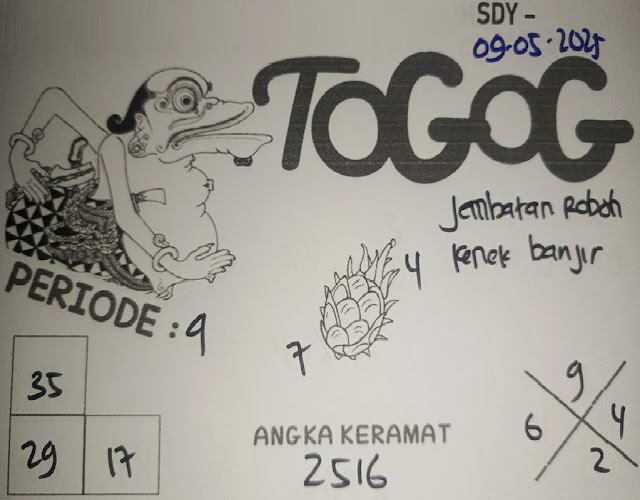 SDY -
09-05-2025
TOGOG
Jembatan Roboh
Kenek banjir
PERIODE : 9
4
7
35
29 17
ANGKA KERAMAT
2516
9
6 4
2